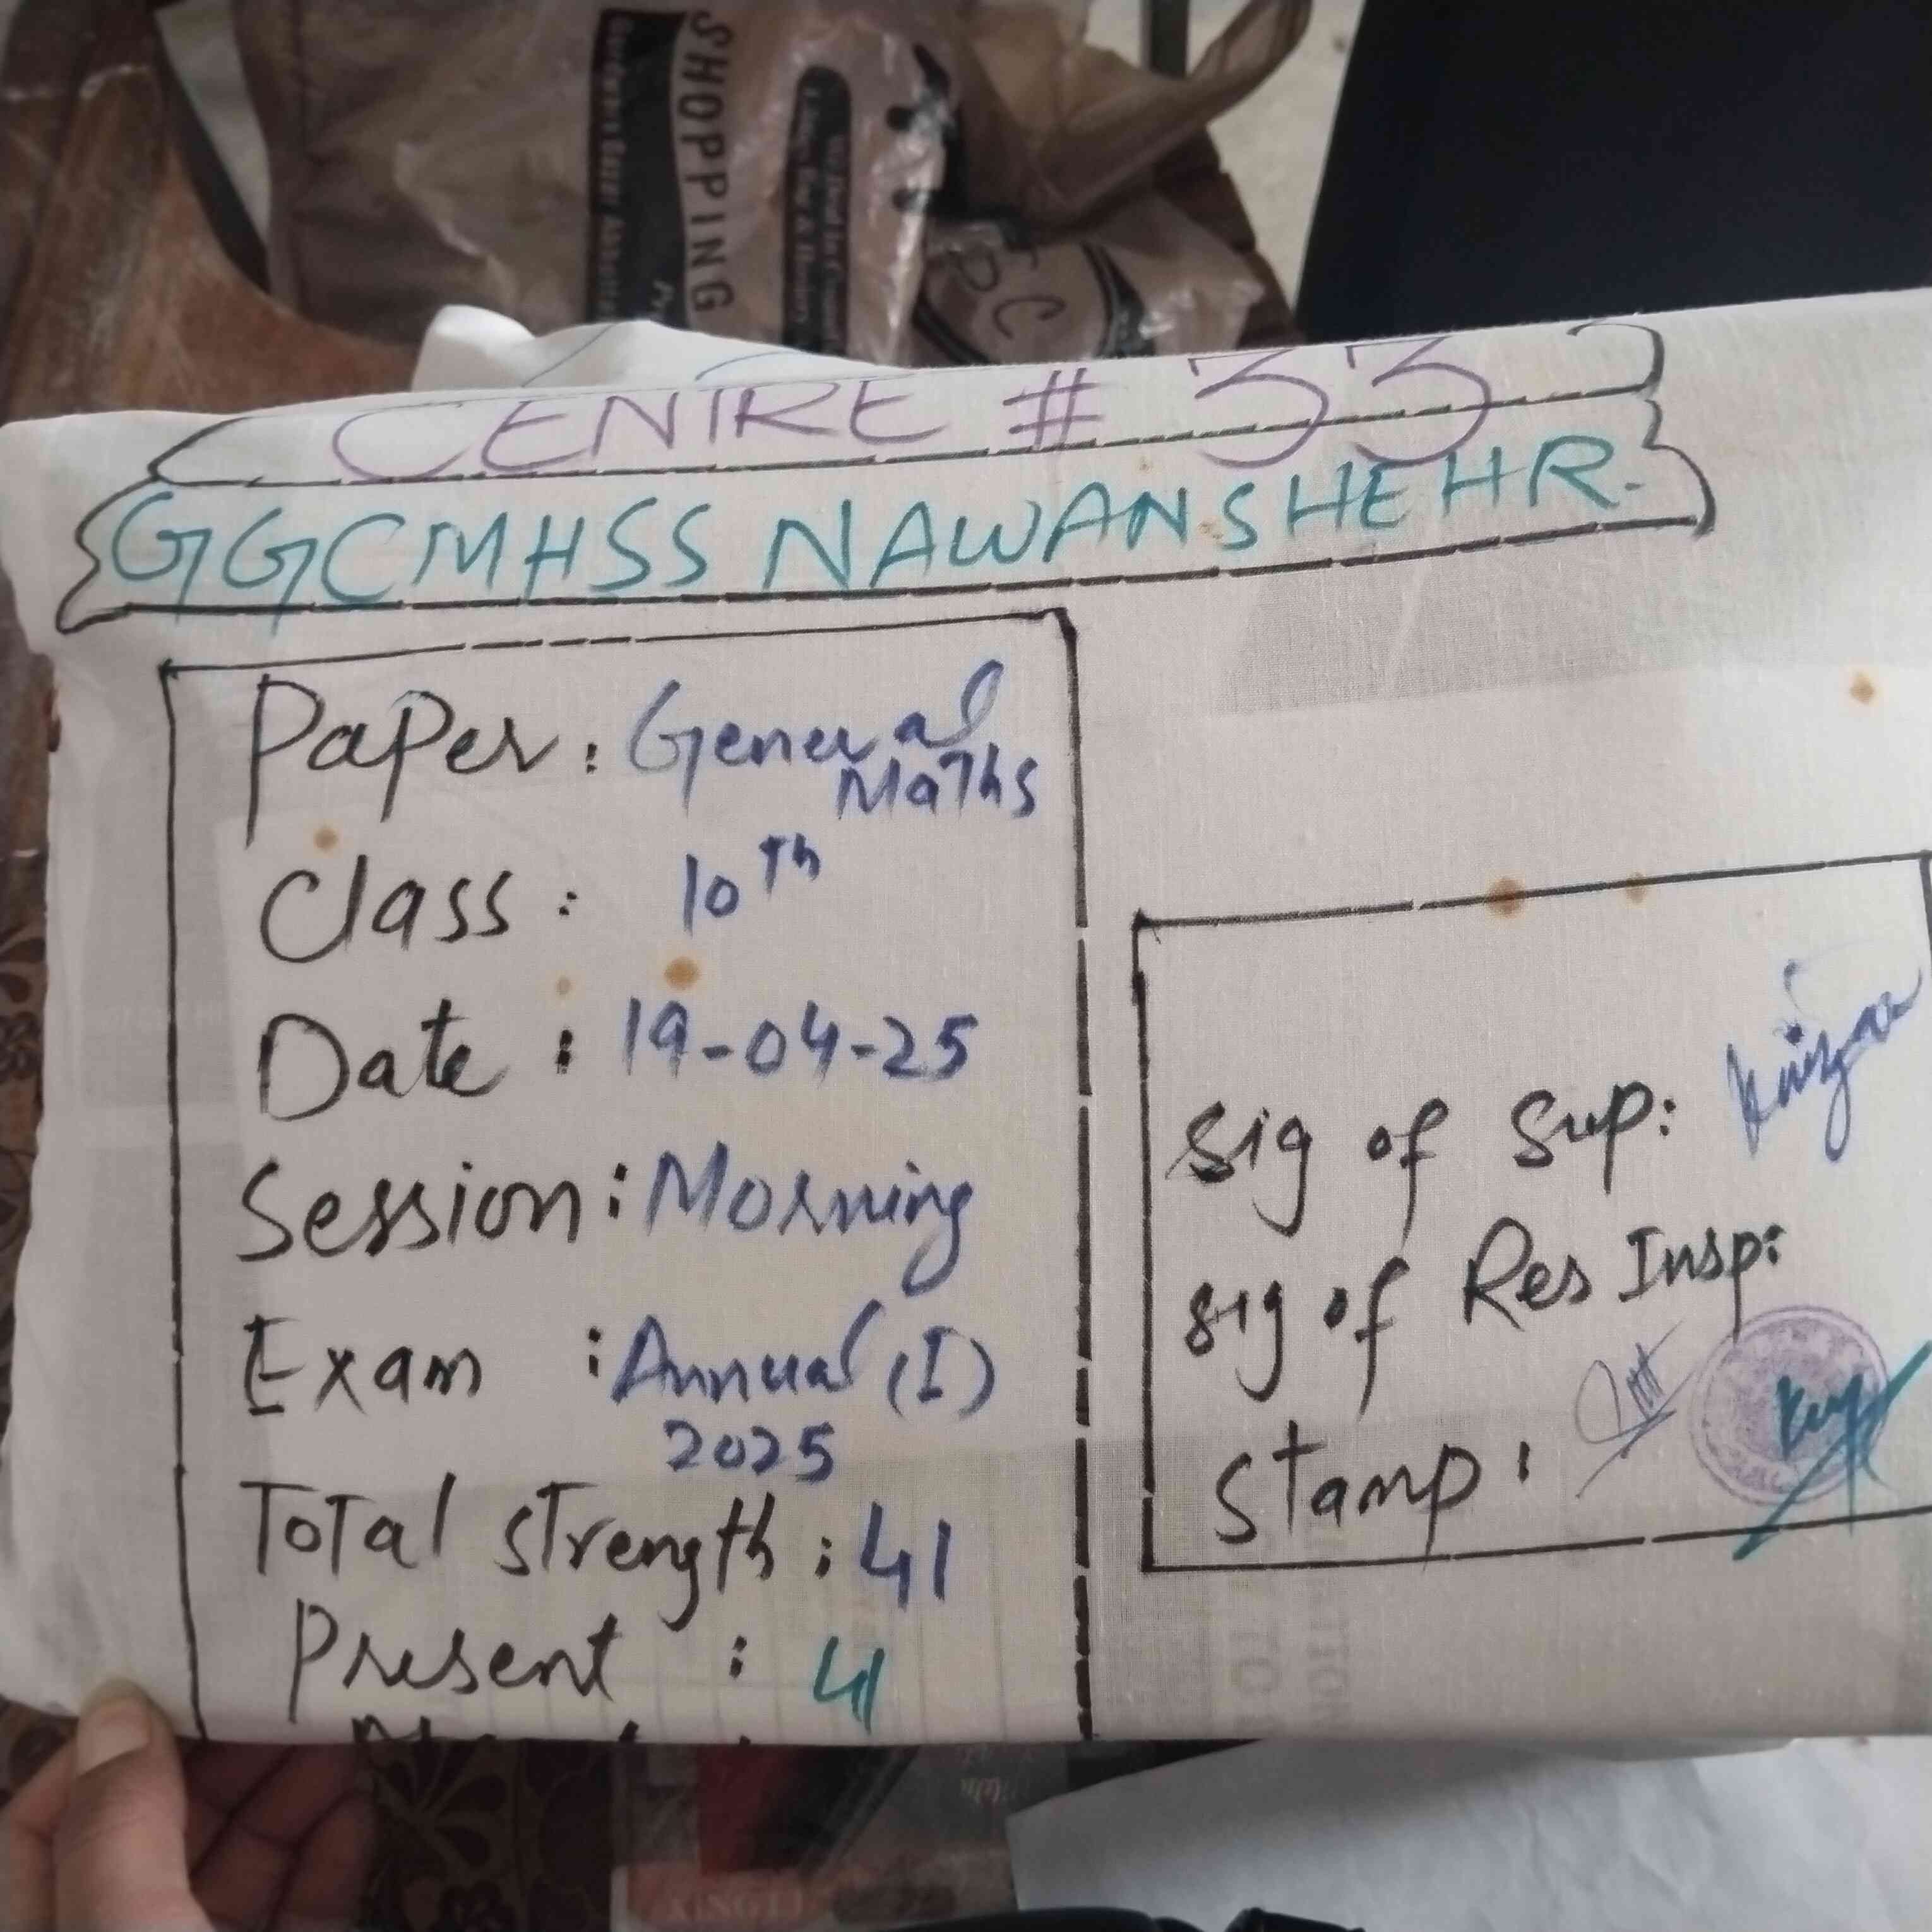 SHOPPING
CENTRE # 33
GGCMHSS NAWANSHEHR.
Paper : General Maths
Class : 10Th
Date : 19-04-25
Session : Morning
Exam : Annual (I)
2025
Total strength : 41
Present : 41
Sig of Sup:
Sig of Res Insp:
Stamp :